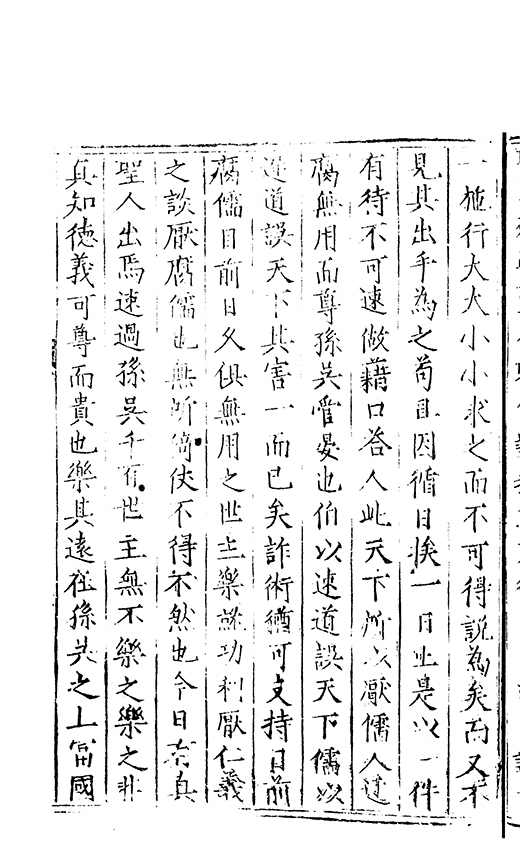 一施行大大小小求之而不可得說為矣而又不
見其出乎為之苟且因循日挨一日止是以一件
有待不可速做藉口答人此天下所以厭儒人迂
腐無用而尊孫吳管晏也伯以速道誤天下儒以
迂道誤天下其害一而已矣詐術猶可支持目前
腐儒目前日久俱無用之世主樂談功利厭仁義
之談厭腐儒也無所倚使不得不然也今日有真
聖人出焉速過孫吳千有世主無不樂之樂之非
真知德義可尊而貴也樂其遠在孫吳之上富國